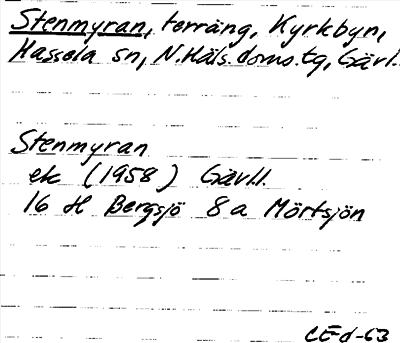 Stenmyran, terräng, Kyrkbyn,
Hassela sn, N.Häls.doms.tg, Gävl.
Stenmyran
ek (1958) Gävl.l.
16 H Bergsjö 8a Mörtsjön
CE-d-63